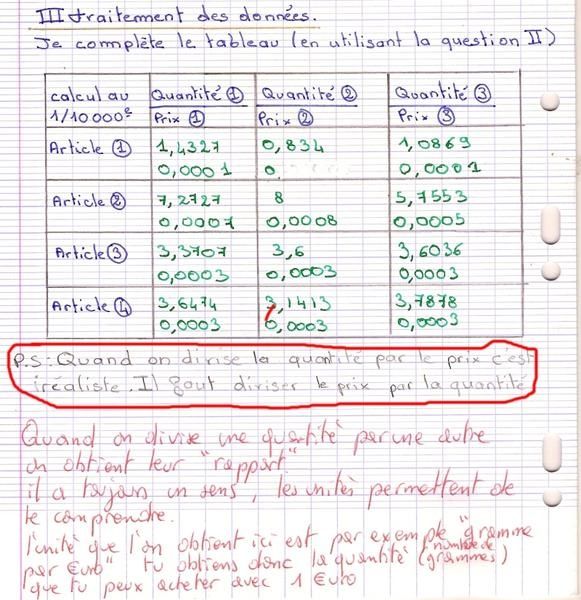 III traitement des données.
Je complète le tableau (en utilisant la question II)
calcul au 1/10 000e Quantité ① Quantité ② Quantité ③
Prix ① Prix ② Prix ③
Article ① 1,4327 0,834 1,0869
0,0001 0 0,0001
Article ② 7,2727 8 5,7553
0,0007 0,0008 0,0005
Article ③ 3,3707 3,6 3,6036
0,0003 0,0003 0,0003
Article ④ 3,6474 3,1413 3,7878
0,0003 0,0003 0,0003
P.S: Quand on divise la quantité par le prix c'est
iréaliste. Il faut diviser le prix par la quantité
Quand on divise une quantité par une autre
on obtient leur "rapport"
il a toujours un sens, les unités permettent de
le comprendre.
l'unité que l'on obtient ici est par exemple "gramme
par €uro" tu obtiens donc la quantité (nombre de grammes)
que tu peux acheter avec 1 €uro